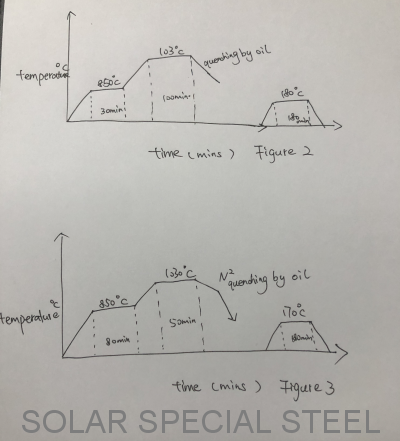 103°C
°C
temperature
850°C
quenching by oil
30min
100min
180°C
180
min
time (mins) Figure 2
1030°C
N² quenching by oil
°C
temperature
850°C
170°C
80min
50min
180min
time (mins) Figure 3
SOLAR SPECIAL STEEL